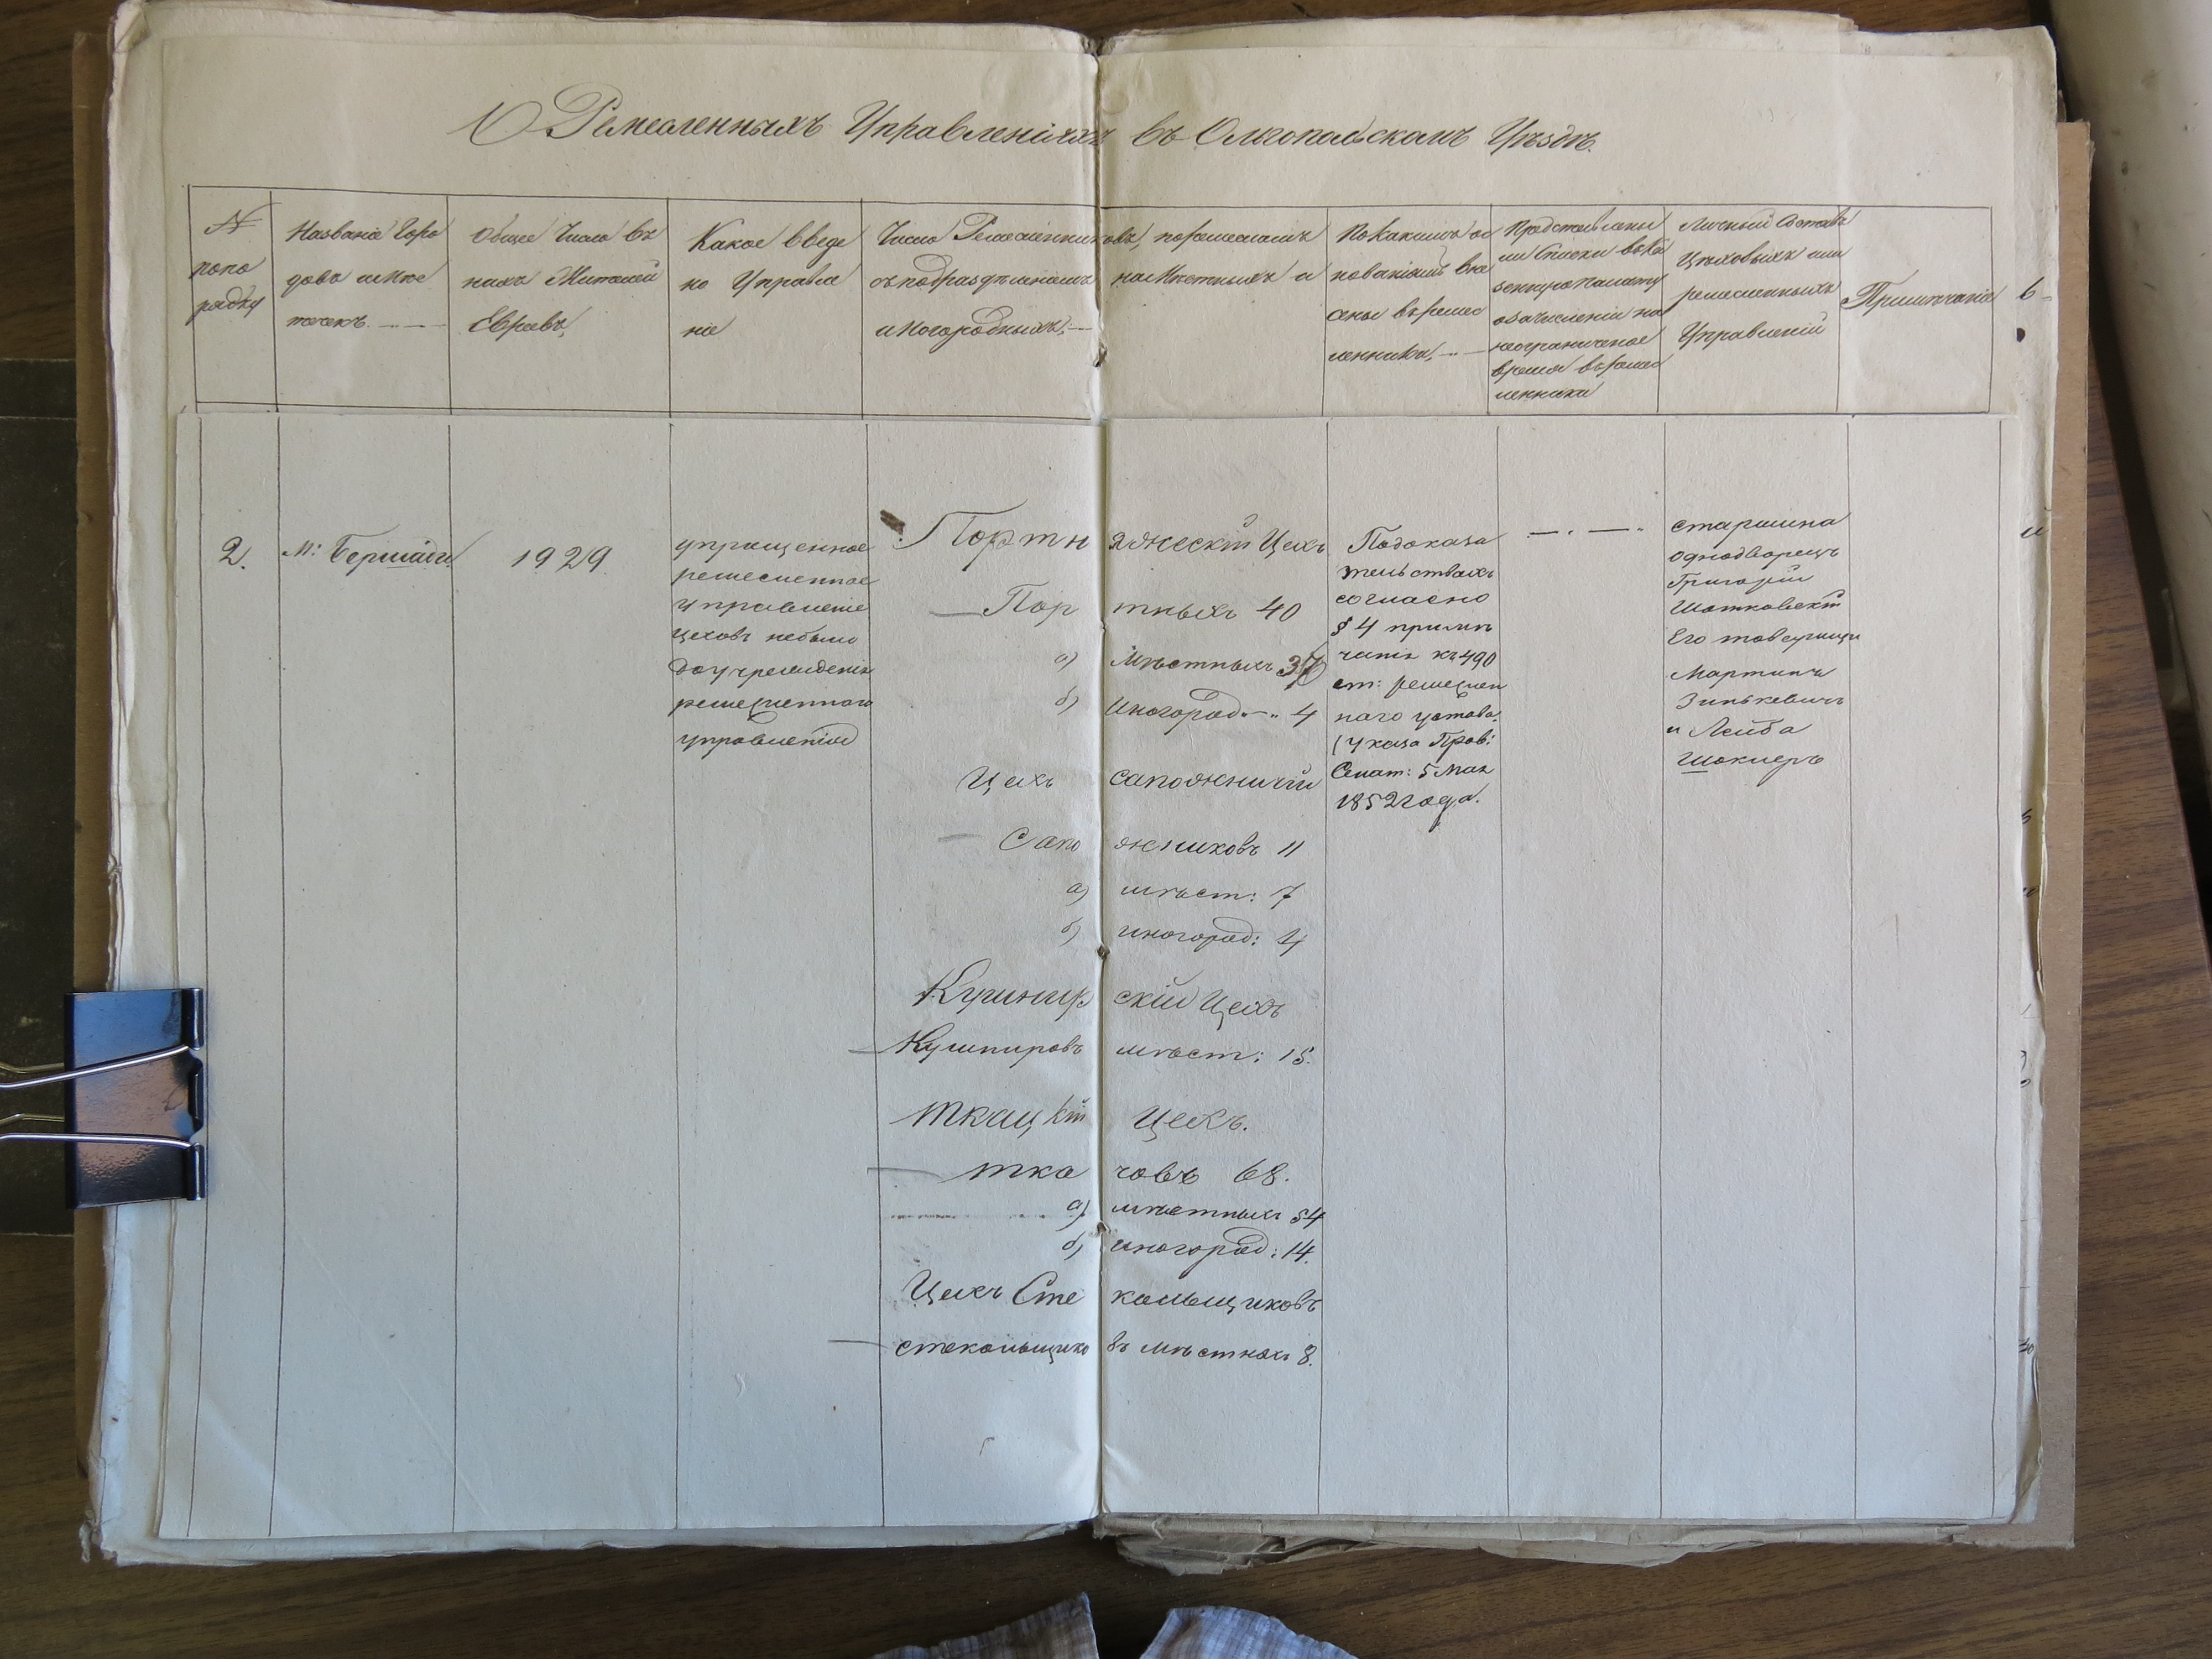 О Ремесленныхъ Управленіяхъ въ Ольгопольскомъ Уѣздѣ.
№
попо
рядку
Названіе Горо
довъ и Мѣс
течекъ.
Общее Число въ
нихъ Жителей
Евреевъ,
Какое введе
но Управле
ніе
Число Ремесленниковъ, поремесламъ
съ подраздѣленіемъ на Мѣстныхъ и
иногородныхъ,
По какимъ ос
нованіямъ вне
сены въ ремес
ленники,
Представлены
ли Списки въ Ка
зенную Палату
о зачисленіи на
неограниченое
время въ ремес
ленники
Личный Составъ
Цѣховыхъ или
ремесленныхъ
Управленій
Примѣчаніе
2.
М: Бершадь
1929
упрощенное
ремесленное
управленіе
цеховъ небыло
до учрежденія
ремесленнаго
управленія
Портняжескій Цехъ
Портныхъ 40
а) Мѣстныхъ 37
б) Иногород. 4
Цехъ сапожничій
Сапожниковъ 11
а) мѣст: 7
б) иногород: 4
Кушнирскій Цехъ
Кушнировъ мѣст: 15.
Ткацкій Цехъ.
ткачовъ 68.
а) мѣстныхъ 54
б) иногород: 14.
Цехъ Стекольщиковъ
стекольщиковъ мѣстныхъ 8.
По доказа
тельствахъ
согласно
§ 4 примѣ
чанія къ 490
ст: ремеслен
наго устава.
(Указа Прав:
Сенат: 5 Мая
1852 года.
старшина
однодворецъ
Григорій
Шатковскій
Его товарищи
Мартинъ
Зинькевичъ
и Лейба
Шоклеръ